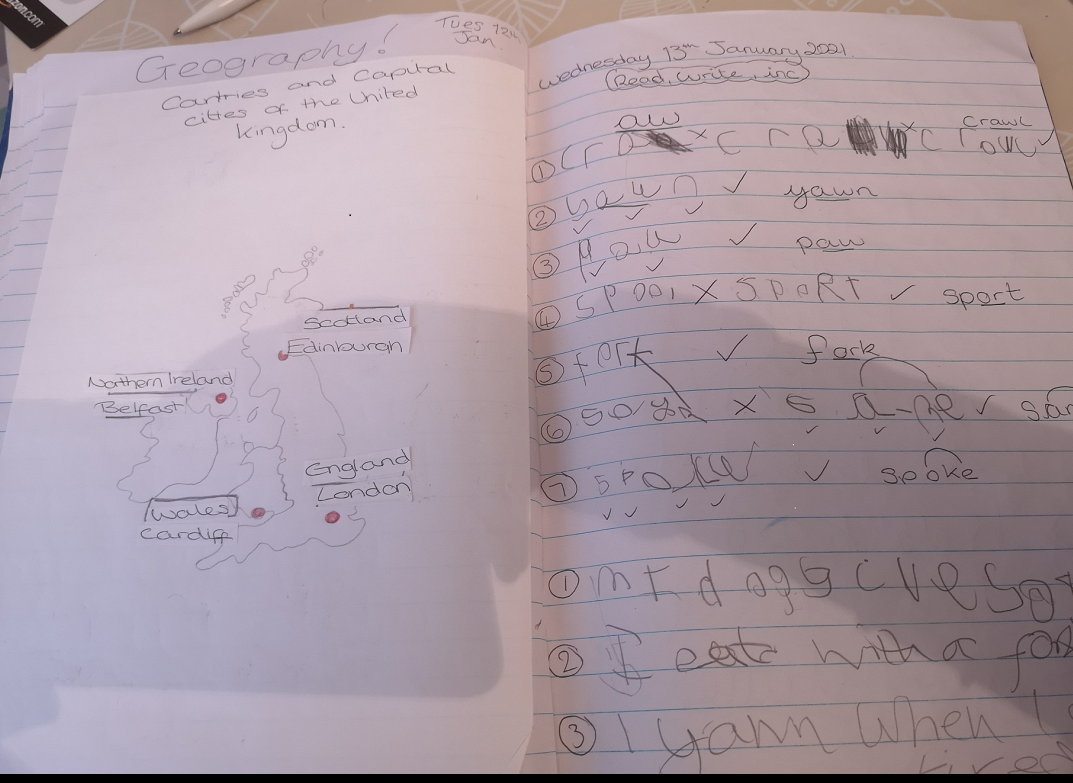 zon.com
Geography!
Tues 12th
Jan.
Countries and Capital
cities of the United
kingdom.
Scotland
Edinburgh
Northern Ireland
Belfast
England
London
Wales
Cardiff
Wednesday 13th January 2021
(Read, Write, inc)
aw
① cra x c r a x c r aw ✓ crawl
② yawn ✓ yawn
③ paw ✓ paw
④ spooi x spoRt ✓ sport
⑤ fork ✓ fork
⑥ x s a-me ✓ sam
⑦ spoke ✓ spoke
① m t d o g g c v e s
② I eat with a for
③ I yawn when I
tired